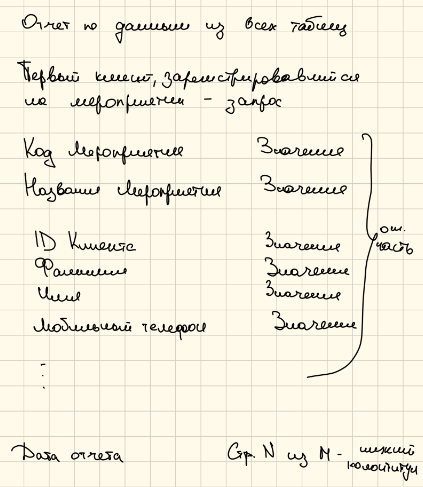 Отчет по данным из всех таблиц
Первый клиент, зарегистрировавшийся
на мероприятии - запрос
Код Мероприятия Значение
Название Мероприятия Значение
ID Клиента Значение
Фамилия Значение
Имя Значение
Мобильный телефон Значение
осн. часть
⋮
Дата отчета Стр. N из M - нижний
колонтитул